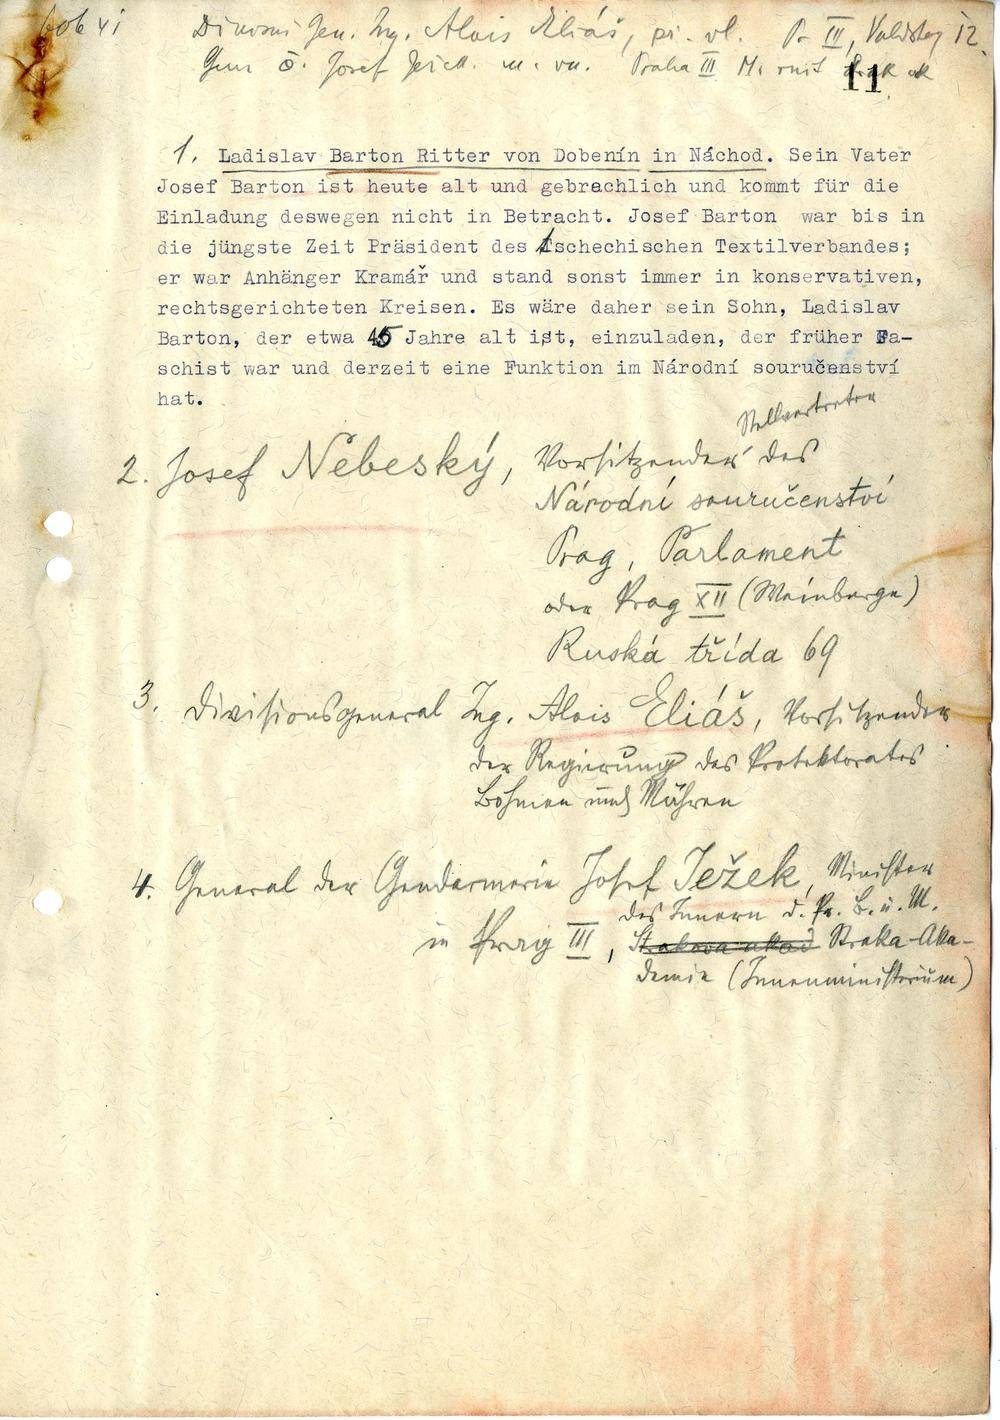 Gen. Ing. Alois Eliáš, III, 12.
Josef Praha III M.
11
1. Ladislav Barton Ritter von Dobenín in Náchod. Sein Vater
Josef Barton ist heute alt und gebrechlich und kommt für die
Einladung deswegen nicht in Betracht. Josef Barton war bis in
die jüngste Zeit Präsident des tschechischen Textilverbandes;
er war Anhänger Kramář und stand sonst immer in konservativen,
rechtsgerichteten Kreisen. Es wäre daher sein Sohn, Ladislav
Barton, der etwa 45 Jahre alt ist, einzuladen, der früher Fa-
schist war und derzeit eine Funktion im Národní souručenství
hat.
Stellvertreter
2. Josef Nebeský, Vorsitzender des
Národní souručenství
Prag, Parlament
oder Prag XII (Weinberge)
Ruská třída 69
3. Divisionsgeneral Ing. Alois Eliáš, Vorsitzender
der Regierung des Protektorates
Böhmen und Mähren
4. General der Gendarmerie Josef Ježek, Minister
des Innern d. Pr. B. u. M.
in Prag III, Straka-Aka-
demie (Innenministerium)